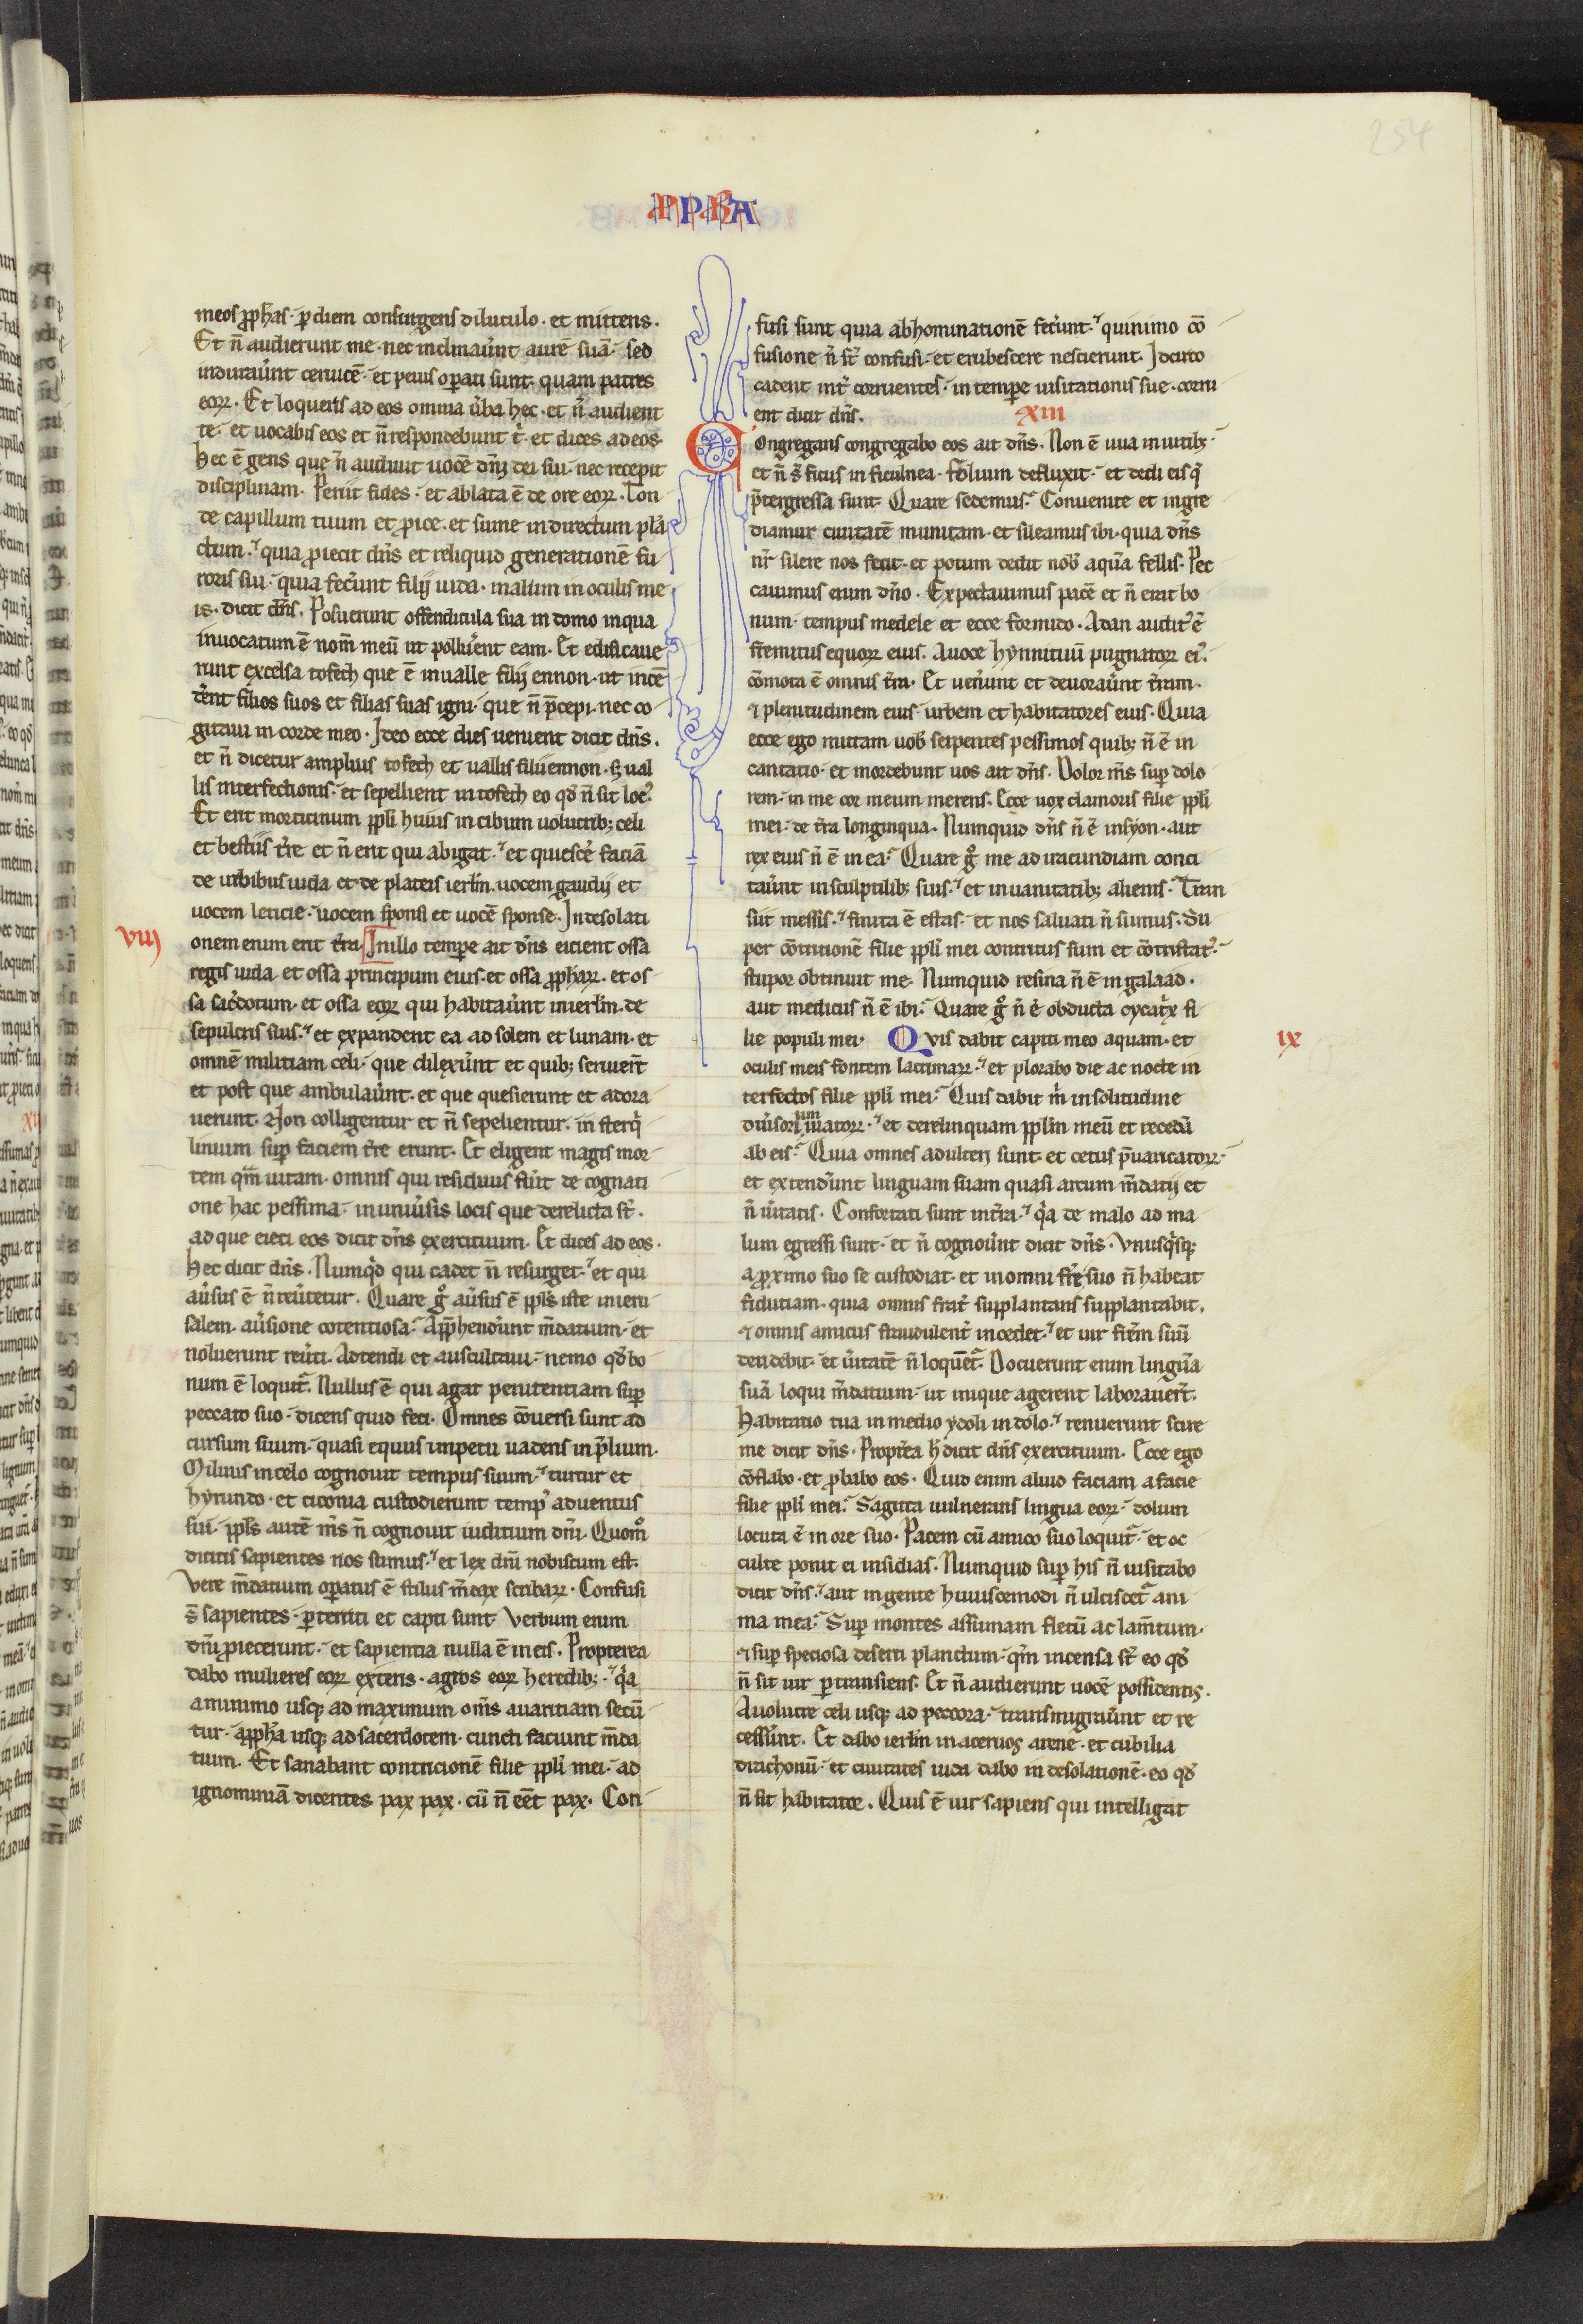 254
PPHA
meos ꝓphas· ꝑ diem consurgens diluculo· et mittens.
Et n̄ audierunt me· nec inclinaűnt aurē suā· sed
induraűnt ceruicē· et peius oꝑati sunt· quam patres
eoꝝ· Et loqueris ad eos omnia űba hec· et n̄ audient
te· et uocabis eos et n̄ respondebunt t̛· et dices ad eos·
hec ē gens que n̄ audiuit uocē dn̄i dei sui· nec recepit
disciplinam· Periit fides· et ablata ē de ore eoꝝ· Ton
de capillum tuum et ꝓice· et sume in directum plā
ctum· quia ꝓiecit dn̄s et reliquid generationē fu
roris sui· quia fec̄unt filij iuda· malum in oculis me
is· dicit dn̄s. Posuerunt offendicula sua in domo in qua
inuocatum ē nom̄ meū ut polluērent eam. Et edificaue
runt excelsa tofech que ē in ualle filij ennon· ut incē
derent filios suos et filias suas igni· que n̄ p̄cepi· nec co
gitaui in corde meo· Ideo ecce dies uenient dicit dn̄s.
et n̄ dicetur amplius tofech et uallis filii ennon· ꝫ ual
lis interfectionis· et sepellient in tofech eo qd̄ n̄ sit locꝰ
Et erit morticinum ppl̄i huius in cibum uolucribꝫ celi
et bestiis tr̄e et n̄ erit qui abigat· et quiesce̛ faciā
de urbibus iuda et de plateis ierl̄m· uocem gaudij et
uocem leticie· uocem sponsi et uocē sponse· In desolati
viij
onem enim erit tr̄a· In illo tempore ait dn̄s eicient ossa
regis iuda et ossa principum eius· et ossa ꝓphaꝝ· et os
sa sac̄dotum· et ossa eoꝝ qui habitaűnt in ierl̄m· de
sepulcris suis· et expandent ea ad solem et lunam· et
omnē militiam celi· que dilexűnt et quibꝫ seruier̄t
et post que ambulaűnt· et que quesierunt et adora
uerunt. Non colligentur et n̄ sepelientur· in sterq̛
linium suꝑ faciem tr̄e erunt. Et eligent magis mor
tem qm̄ uitam· omnis qui residuus fűit de cognati
one hac pessima· in uniűsis locis que derelicta st̄.
ad que eieci eos dicit dn̄s exercituum. Et dices ad eos·
hec dicit dn̄s· Numqd̛ qui cadet n̄ resurget· et qui
aűsus ē n̄ reűtetur. Quare gͦ aűsus ē ppl̄s iste in ieru
salem· aűsione cotentiosa· Appͭhendűnt m̄datium· et
noluerunt reűti. Adtendi et auscultaui· nemo qd̄ bo
num ē loquit̛. Nullus ē qui agat penitentiam suꝑ
peccato suo· dicens quid feci· Omnes cōuersi sunt ad
cursum suum· quasi equus impetu uadens in p̄lium·
Miluus in celo cognouit tempus suum· turtur et
hyrundo· et ciconia custodierunt tempꝰ aduentus
sui· ppl̄s autē m̄s n̄ cognouit iuditium dn̄i· Quomͦ
dicitis sapientes nos sumus· et lex dn̄i nobiscum est.
Vere m̄datium oꝑatus ē stilus m̄dax scribaꝝ· Confusi
s̄ sapientes· ꝑterriti et capti sunt· Verbum enim
dn̄i ꝓiecerunt· et sapientia nulla ē in eis. Propterea
dabo mulieres eoꝝ exteris· agros eoꝝ heredibꝫ· q̛a
a minimo usqꝫ ad maximum om̄s auaritiam secū
tur· a ꝓpha usqꝫ ad sacerdotem· cuncti faciunt m̄da
tium. Et sanabant contricionē filie ppl̄i mei· ad
ignominiā dicentes pax pax· cū n̄ eēt pax· Con
fusi sunt quia abhominationē fec̄unt· quinimo cō
fusione n̄ st̄ confusi· et erubescere nescierunt· Idcirco
cadent int̛ corruentes· in tempore uisitationis sue· corru
ent dicit dn̄s. xiii
Congregans congregabo eos ait dn̄s· Non ē uua in uitibꝫ·
et n̄ s̄ ficus in ficulnea· Folium defluxit· et dedi eis q̄
p̄tergressa sunt· Quare sedemus· Conuenite et ingre
diamur ciuitatē munitam· et sileamus ibi· quia dn̄s
nr̄ silere nos fecit· et potum dedit nob̄ aquā fellis· Pec
cauimus enim dn̄o· Expectauimus pacē et n̄ erat bo
num· tempus medele et ecce formido· A dan auditꝰ ē
fremitus equoꝝ eius. A uoce hynnituū pugnatoꝝ eiꝰ·
cōmota ē omnis tr̄a· Et uenűnt et deuoraűnt tr̄am·
⁊ plenitudinem eius· urbem et habitatores eius· Quia
ecce ego mittam uob̄ serpentes pessimos quibꝫ n̄ ē in
cantatio· et mordebunt uos ait dn̄s· Dolor m̄s suꝑ dolo
rem· in me cor meum merens· Ecce uox clamoris filie ppl̄i
mei· de tr̄a longinqua· Numquid dn̄s n̄ ē in syon· aut
rex eius n̄ ē in ea· Quare gͦ me ad iracundiam conci
taűnt in sculptilibꝫ suis· et in uanitatibꝫ alienis· Tran
siit messis· finita ē estas· et nos saluati n̄ sumus· Su
per cōtritionē filie ppl̄i mei contritus sum et cōtristatꝰ·
stupor obtinuit me· Numquid resina n̄ ē in galaad·
aut medicus n̄ ē ibi· Quare gͦ n̄ ē obducta cycatx̛ fi
lie populi mei· Qvis dabit capiti meo aquam· et
ix
oculis meis fontem lacrimaꝝ· et plorabo die ac nocte in
terfectos filie ppl̄i mei· Quis dabit m̛ in solitudine
diűsorium uiatoꝝ· et derelinquam ppl̄m meū et recedā
ab eis· Quia omnes adulteri sunt· et cetus p̄uaricatoꝝ·
et extendűnt linguam suam quasi arcum m̄datij et
n̄ űitatis· Confortati sunt in tr̄a· q̛a de malo ad ma
lum egressi sunt· et n̄ cognoűnt dicit dn̄s· Vnusq̛sqꝫ
a ꝓximo suo se custodiat· et in omni fr̄e suo n̄ habeat
fidutiam· quia omnis frat̛ supplantans supplantabit.
⁊ omnis amicus fraudulent̛ incedet· et uir fr̄em suū
deridebit· et űitatē n̄ loquēt̛· Docuerunt enim linguā
suā loqui m̄datium· ut inique agerent laborauer̄t.
habitatio tua in medio ydoli in dolo· renuerunt scire
me dicit dn̄s· Propt̛ea h̄ dicit dn̄s exercituum· Ecce ego
cōflabo· et ꝓbabo eos· Quid enim aliud faciam a facie
filie ppl̄i mei· Sagitta uulnerans lingua eoꝝ· dolum
locuta ē in ore suo· Pacem cū amico suo loquit̛· et oc
culte ponit ei insidias· Numquid suꝑ his n̄ uisitabo
dicit dn̄s· aut in gente huiuscemodi n̄ ulciscet̛ ani
ma mea· Suꝑ montes assumam fletū ac lam̄tum·
⁊ suꝑ speciosa deserti planctum· qm̄ incensa st̄ eo qd̄
n̄ sit uir ꝑtransiens· Et n̄ audierunt uocē possidentis·
A uolucre celi usqꝫ ad peccora· transmigraűnt et re
cesserűnt· Et dabo ierl̄m in aceruos arene· et cubilia
drachonū· et ciuitates iuda dabo in desolationē· eo qd̄
n̄ sit habitator· Quis ē uir sapiens qui intelligat